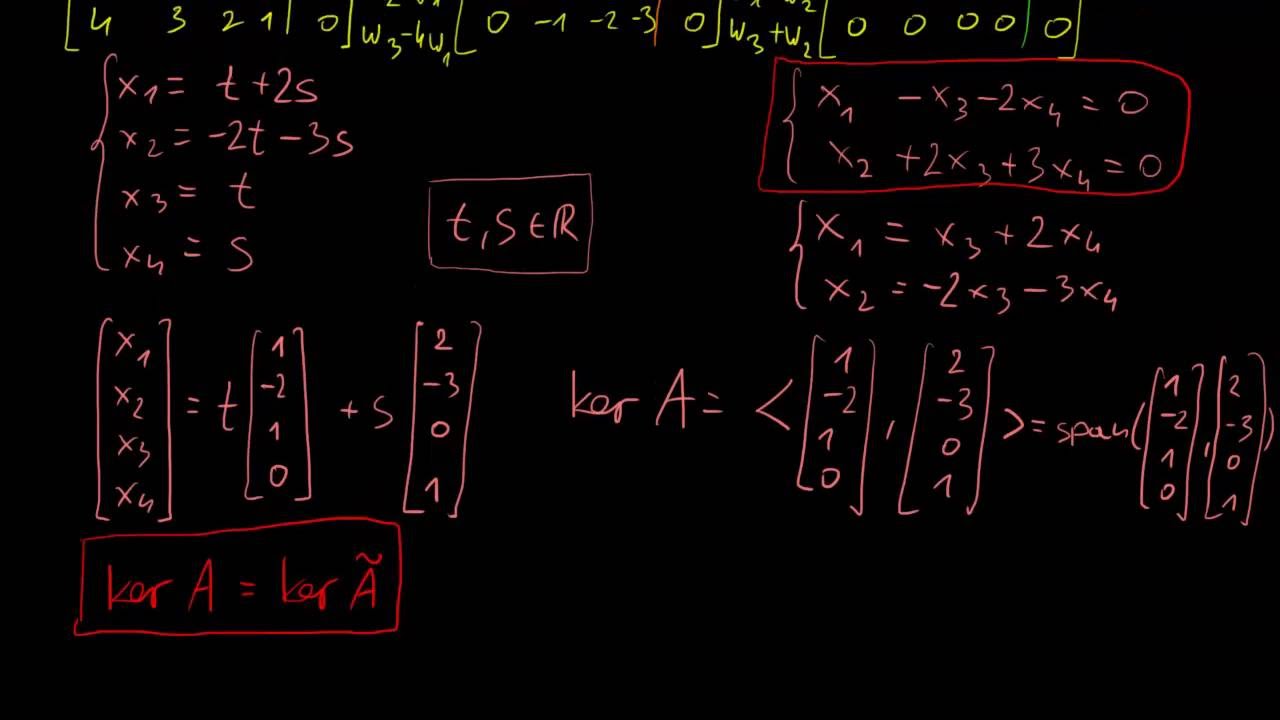 [ 4 3 2 1 | 0 ] w₃-4w₁ [ 0 -1 -2 -3 | 0 ] w₃+w₂ [ 0 0 0 0 | 0 ]
{ x₁ = t + 2s
x₂ = -2t - 3s
x₃ = t
x₄ = s
t, s ∈ ℝ
{ x₁ - x₃ - 2x₄ = 0
x₂ + 2x₃ + 3x₄ = 0
{ x₁ = x₃ + 2x₄
x₂ = -2x₃ - 3x₄
[x₁ x₂ x₃ x₄] = t [1 -2 1 0] + s [2 -3 0 1]
ker A = < [1 -2 1 0] , [2 -3 0 1] > = span( [1 -2 1 0] , [2 -3 0 1] )
ker A = ker Ã